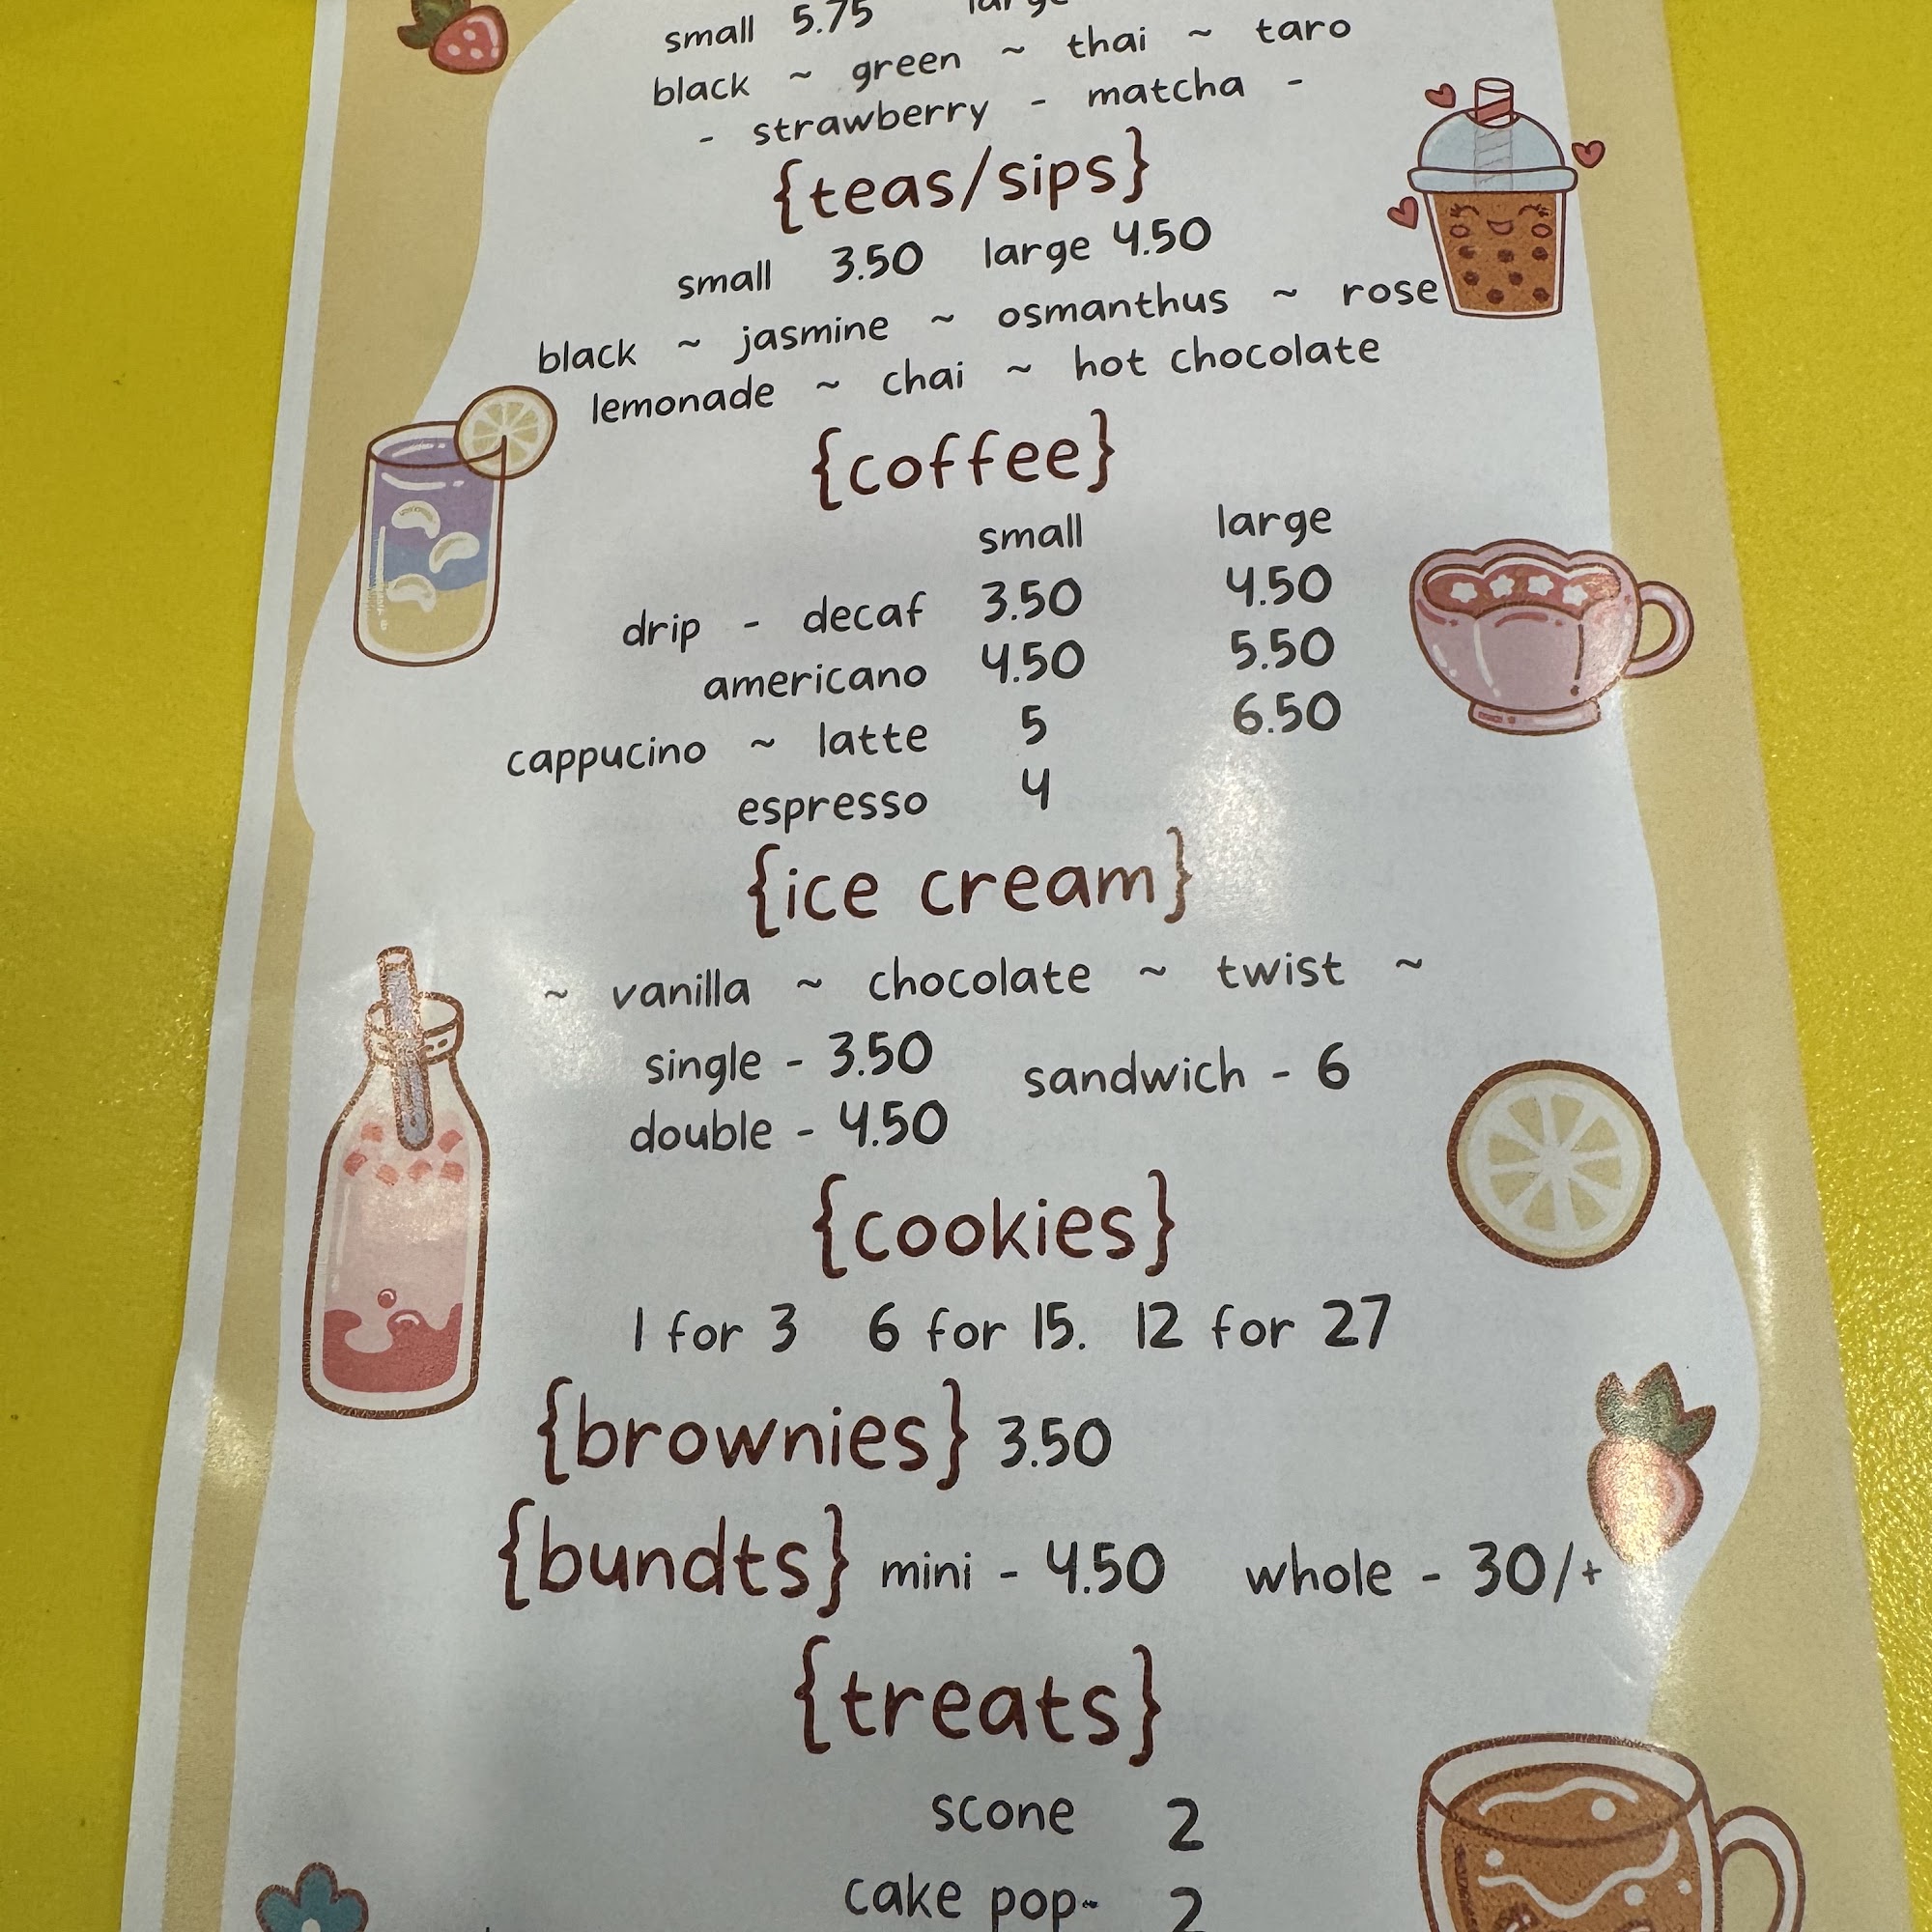 small 5.75 large
black ~ green ~ thai ~ taro
- strawberry - matcha -
{teas/sips}
small 3.50 large 4.50
black ~ jasmine ~ osmanthus ~ rose
lemonade ~ chai ~ hot chocolate
{coffee}
small large
drip - decaf 3.50 4.50
americano 4.50 5.50
cappucino ~ latte 5 6.50
espresso 4
{ice cream}
~ vanilla ~ chocolate ~ twist ~
single - 3.50 sandwich - 6
double - 4.50
{cookies}
1 for 3 6 for 15. 12 for 27
{brownies} 3.50
{bundts} mini - 4.50 whole - 30/+
{treats}
scone 2
cake pop~ 2